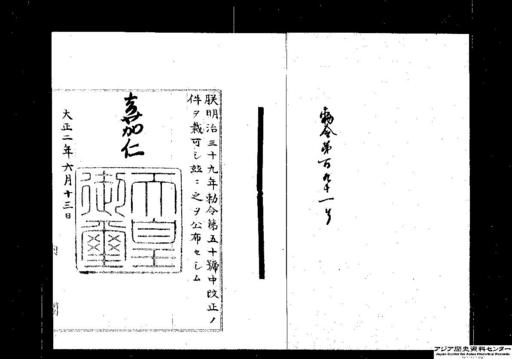 勅令第百九十一号
朕明治三十九年勅令第五十號中改正ノ
件ヲ裁可シ玆ニ之ヲ公布セシム
嘉仁
天皇御璽
大正二年六月十三日
アジア歴史資料センター
Japan Center for Asian Historical Records